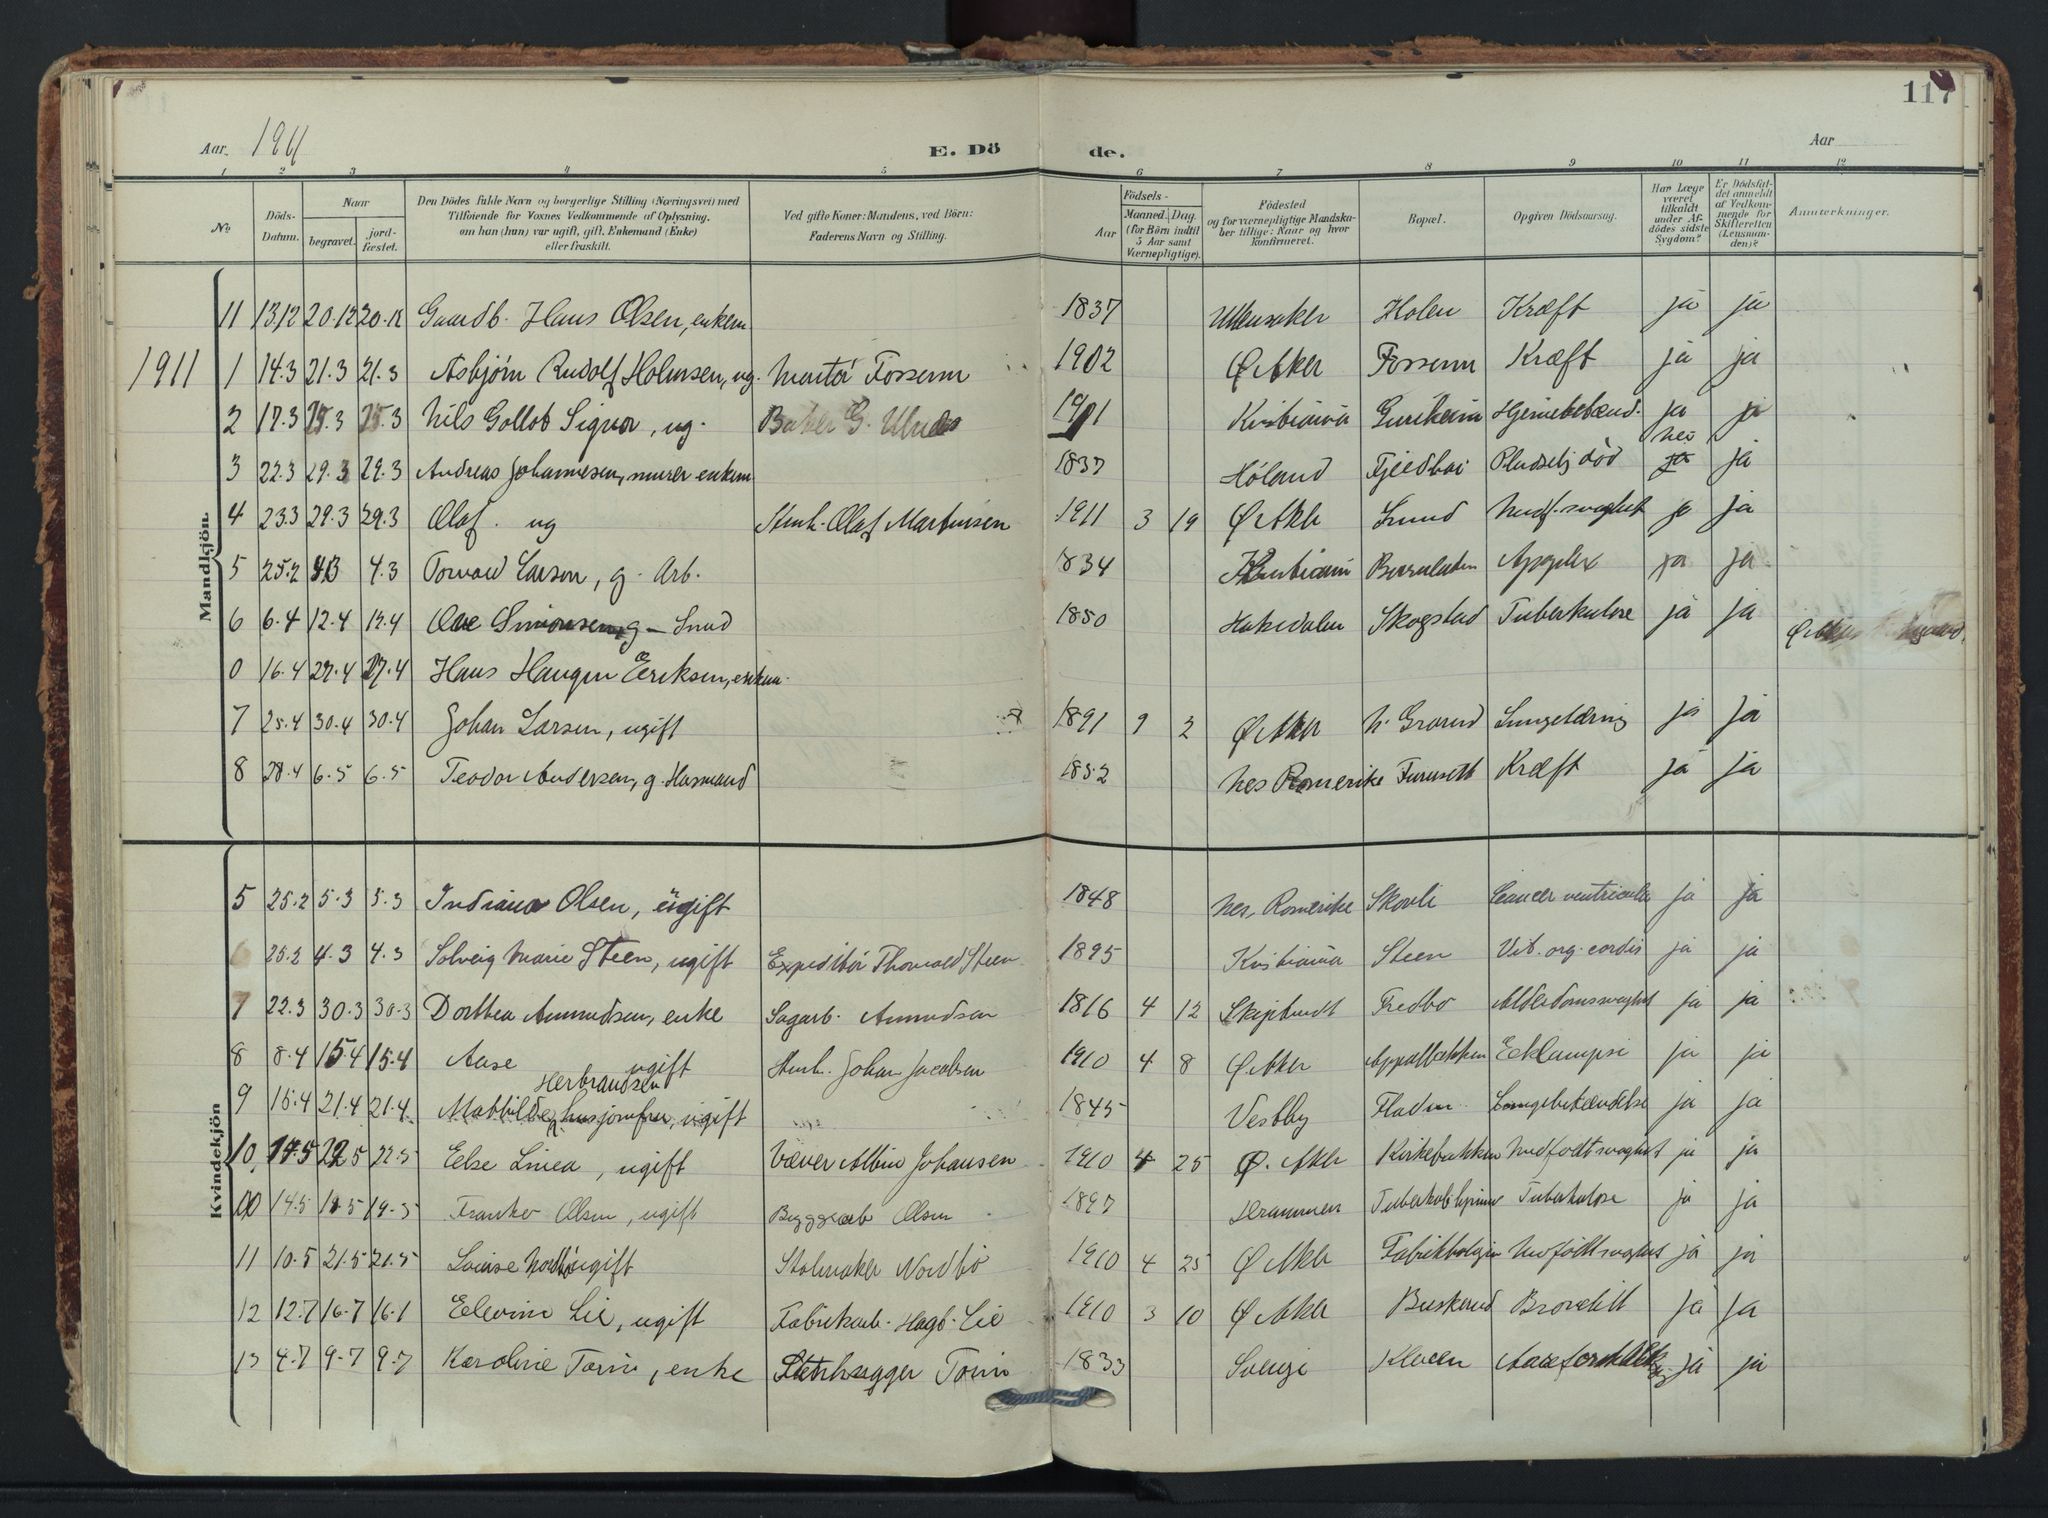 117
Aar. 1911 E. Dö de. Aar
1 2 3 4 5 6 7 8 9 10 11 12
No Döds-Datum. Naar begravet. jordfæstet. Den Dödes fulde Navn og borgerlige Stilling (Næringsvei) med Tilföiende for Voxnes Vedkommende af Oplysning, om han (hun) var ugift, gift, Enkemand (Enke) eller fraskilt. Ved gifte Koner: Mandens, ved Börn: Faderens Navn og Stilling. Födsels- Aar Maaned. Dag. (for Börn indtil 5 Aar samt Værnepligtige). Födested og for værnepligtige Mandskaber tillige: Naar og hvor konfirmeret. Bopæl. Opgiven Dödsaarsag. Har Læge været tilkaldt under Afdödes sidste Sygdom? Er Dödsfaldet anmeldt af Vedkommende for Skifteretten (Lensmanden)? Anmærkninger.
Mandkjön.
11 13/12 20.12 20.12 Gaardb. Hans Olsen, enkem 1837 Ullensaker Holen Kræft ja ja
1911 1 14.3 21.3 21.3 Asbjørn Rudolf Holmsen, ug. Montør 1902 Ø Aker Kræft ja ja
2 17.3 Nils Gottlob Signor, ug. Baker G. 1901 Kristiania ja ja
3 22.3 29.3 29.3 Andreas Johannesen, murer enkem 1837 Høland Pludselig død nei ja ja
4 23.3 29.3 29.3 Olaf. ug Stenh. Olaf Martinsen 1911 3 19 Ø Aker Lund Medf. svaghet ja ja
5 25.2 4.3 4.3 Torvald Larsen, g. Arb. 1834 Kristiania Apoplex ja ja
6 6.4 12.4 12.4 Ole Simonsen, g- Smed 1850 Hakedalen Skogstad Tuberkulose ja ja
0 16.4 27.4 27.4 Hans Haugen Eeriksen, enkem.
7 25.4 30.4 30.4 Johan Larsen, ugift 1891 9 2 Ø Aker N. Grorud Lungetæring ja ja
8 28.4 6.5 6.5 Teodor Andersen, g. Husmand 1852 Nes Romerike Furuseth Kræft ja ja
Kvindekjön
5 25.2 5.3 5.3 Indiana Olsen, ugift 1848 Nes, Romerike Skovli Cancer ventricula ja ja
6 25.2 4.3 4.3 Solveig Marie Steen, ugift Expeditør Thorvald Steen 1895 Kristiania Steen Vit. org. cordis ja ja
7 22.3 30.3 30.3 Dorthea Amundsen, enke Sagarb. Amundsen 1816 4 12 Skiptvedt Fredbo Alderdomssvaghet ja ja
8 8.4 15.4 15.4 Aase ugift Stenh. Johan Jacobsen 1910 4 8 Ø Aker Appalbakken Eclampsi ja ja
9 15.4 21.4 21.4 Mathilde Herbrandsen, husjomfru, ugift 1845 Vestby Fladen Lungebetændelse ja ja
10 17.5 22.5 22.5 Else Linea, ugift Væver Albin Johansen 1910 4 25 Ø. Aker Kirkebakken Medfødt svaghet ja ja
14.5 19.5 19.5 Olsen, ugift Olsen 1897 Drammen Tuberkulose ja ja
11 10.5 21.5 21.5 Louise Nordbø ugift Stolmaker Nordbö 1910 4 25 Ø Aker Fabrikboligen Medfødt svaghet ja ja
12 12.7 16.7 16.7 Ellevine Lie, ugift Fabrikarb. Hagb. Lie 1910 3 10 Ø Aker Buskerud Bronchitt ja ja
13 4.7 9.7 9.7 Karoline Torin, enke Stenhugger Torin 1833 Sverige Kloven ja ja